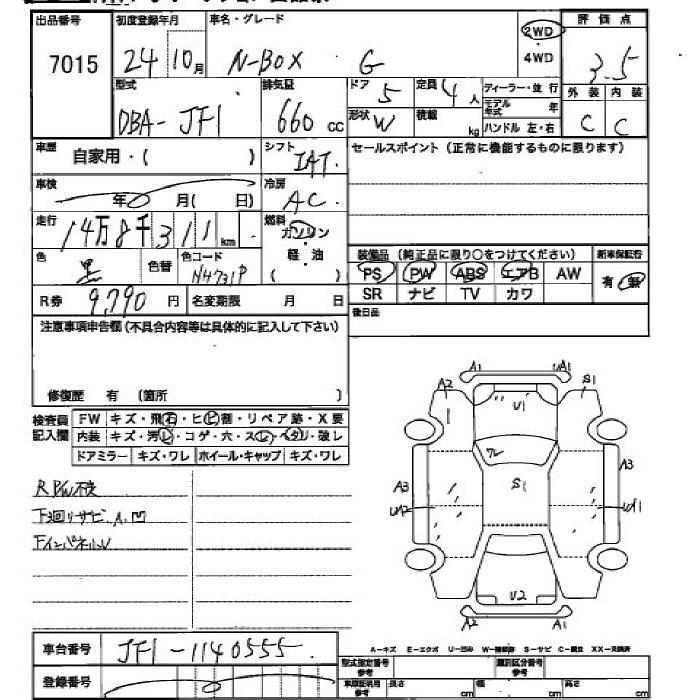 出品番号 初度登録年月 車名・グレード 評価点
7015 24 10月 N-BOX G 2WD 4WD 3.5
型式 排気量 ドア 5 定員 4人 ディーラー・並行 外装 内装
DBA-JF1 660cc 形状 W 積載 kg モデル年式 年 ハンドル 左・右 C C
車歴 自家用・( ) シフト IAT セールスポイント(正常に機能するものに限ります)
車検 年 月( 日) 冷房 AC
走行 14万8千311km 燃料 ガソリン
色 黒 色替 色コード 軽・油 ( ) 装備品(純正品に限り○をつけてください) 新車保証書
PS PW ABS エアB AW 有・無
R券 9,790円 名変期限 月 日 SR ナビ TV カワ
注意事項申告欄(不具合内容等は具体的に記入して下さい) 後日品
修復歴 有 (箇所 )
検査員記入欄 FW キズ・飛石・ヒビ割・リペア跡・X要
内装 キズ・汚レ・コゲ・穴・スレ・ヘタリ・破レ
ドアミラー キズ・ワレ ホイール・キャップ キズ・ワレ
R P/W不良
下廻りサビ.A.凹
FインパネルU
A1 A1
A2 S1
U1
A3 S1 A3
UA2 UA1
U2
A2 A1
A-キズ E-エクボ U-凹み W-補修跡 S-サビ C-腐立 XX-交換済
車台番号 JF1-1140555
登録番号
型式指定番号 類別区分番号
長さ cm 幅 cm 高さ cm